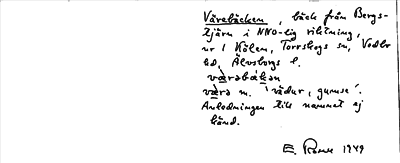 Värebäcken, bäck från Bergs-
tjärn i NNO-lig riktning,
nr 1 Kölen, Torrskogs sn, Vedbo
hd, Älvsborgs l.
värabäkan
vära m. 'vädur, gumse'.
Anledningen till namnet ej
känd.
E. 1949